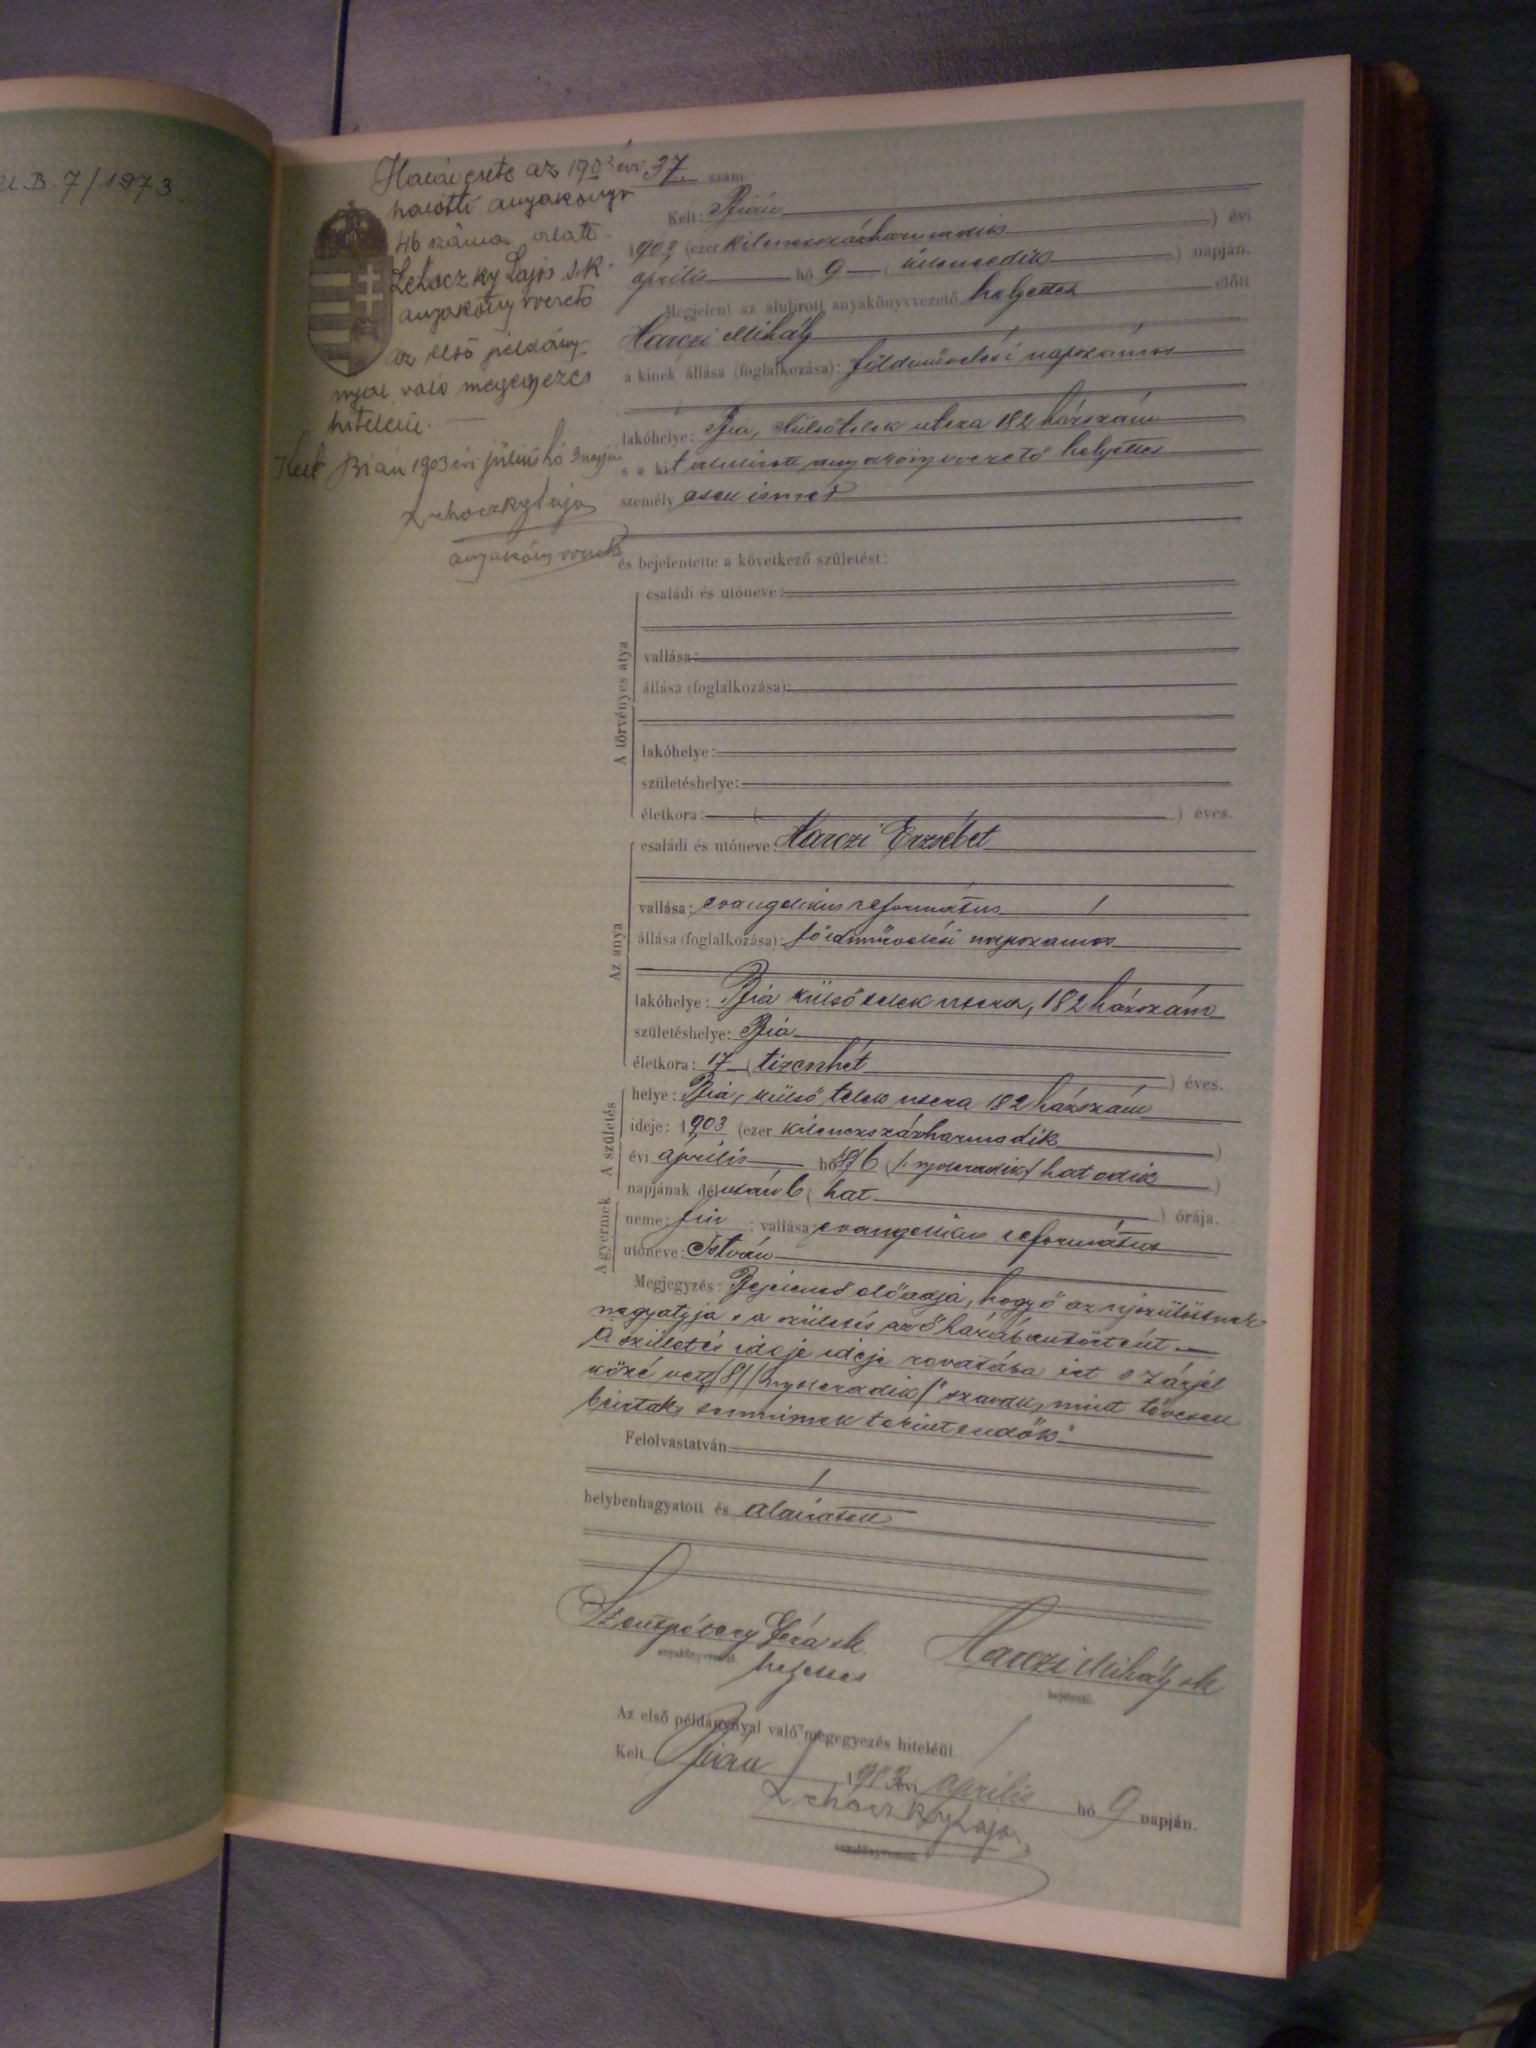 B. 7/1973.
Halálesete az 1903 évi
halotti anyakönyv
46 száma alatt.
Lehoczky Lajos s.k.
anyakönyvvezető
az első példány-
nyal való megegyezés
hiteléül.
Kelt Bián 1903 évi július hó 3 napján
Lehoczky Lajos
anyakönyvvezető
37. szám
Kelt: Bián
1903 (ezer kilenczszázharmadik ) évi
április hó 9 ( kilencedik ) napján.
Megjelent az alulirott anyakönyvvezető helyettes előtt
Harczi Mihály
a kinek állása (foglalkozása): földművelési napszámos
lakóhelye: Bia, Külsőtelek utcza 182 házszám
s a kit alulirott anyakönyvvezető helyettes
személyesen ismer
és bejelentette a következő születést:
A törvényes atya
családi és utóneve:
vallása:
állása (foglalkozása):
lakóhelye:
születéshelye:
életkora: ( ) éves.
Az anya
családi és utóneve: Harczi Erzsébet
vallása: evangelikus református
állása (foglalkozása): földművelési napszámos
lakóhelye: Bia külsőtelek utcza, 182 házszám
születéshelye: Bia
életkora: 17 ( tizenhét ) éves.
A születés
helye: Bia, külső telek utcza 182 házszám
ideje: 1903 (ezer kilenczszázharmadik )
évi április hó /8/ 6 (/nyolczadik/ hatodik )
napjának délután 6 ( hat ) órája.
A gyermek
neme: fiu ; vallása: evangelikus református
utóneve: István
Megjegyzés: Bejelentő előadja, hogy ő az újszülöttnek
nagyatyja s a születés az ő házában történt
A születés ideje rovatába irt s zárjel
közé vett /8/ /nyolczadik/ szavak, mint tévesen
beirtak, semminek tekintendők
Felolvastatván
helybenhagyatott és aláiratott
Szentpétery Géza sk
anyakönyvvezető
helyettes
Harczi Mihály sk
bejelentő.
Az első példánynyal való megegyezés hiteléül.
Kelt Bián 1903 évi április hó 9 napján.
Lehoczky Lajos
anyakönyvvezető